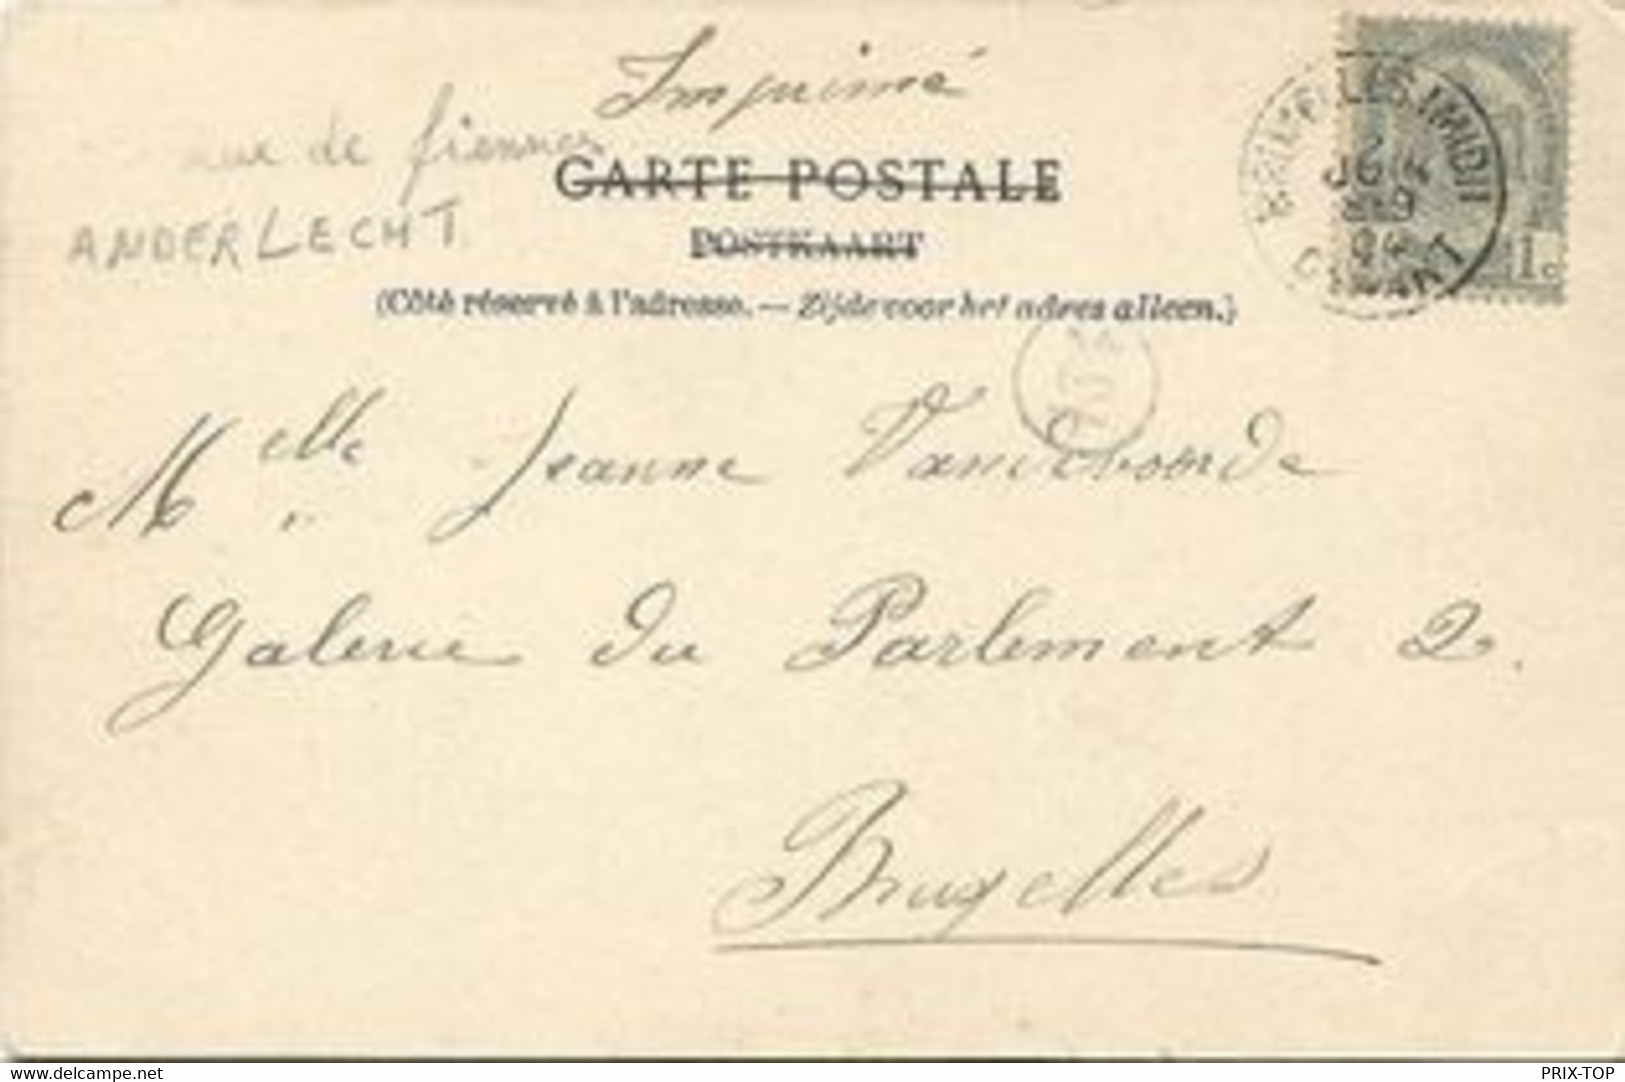 Imprimé
rue de fiennes
CARTE POSTALE
ANDERLECHT
POSTKAART
(Côté réservé à l'adresse. — Zijde voor het adres alleen.)
BRUXELLES (MIDI)
JUIN
DÉPART
1 c
Melle Jeanne Vandevoorde
Galerie du Parlement 2.
Bruxelles
www.delcampe.net
PRIX-TOP